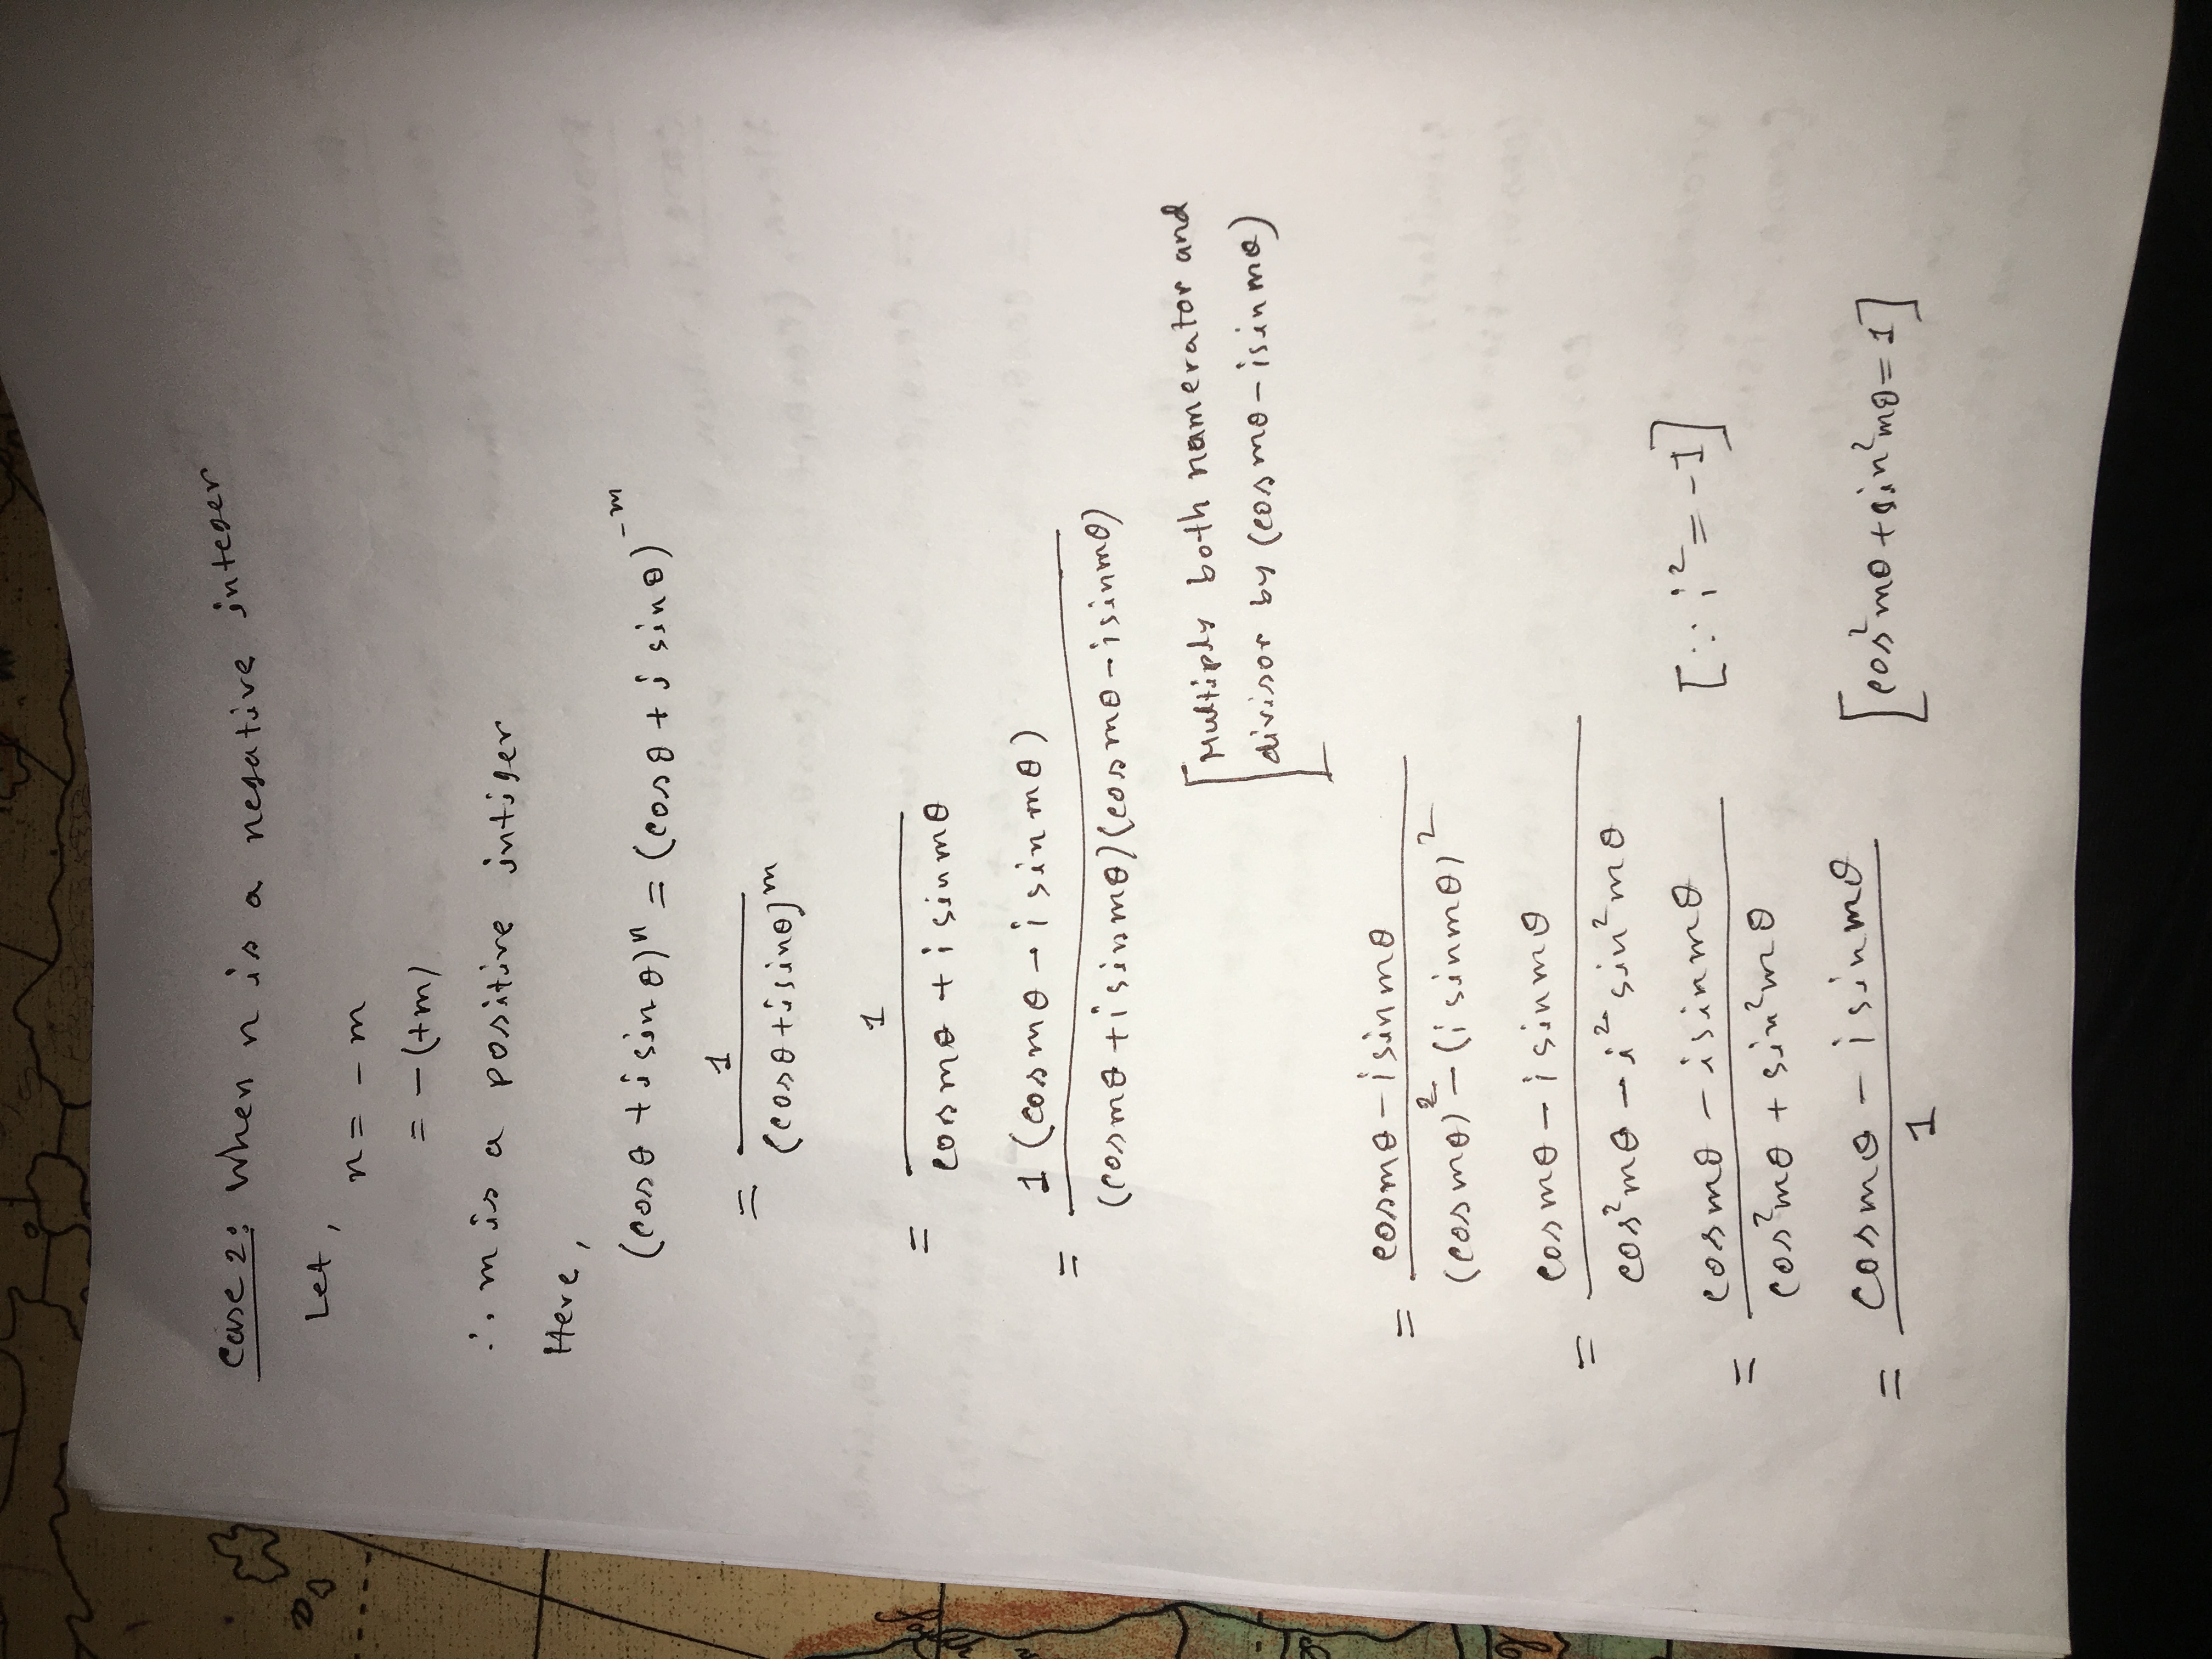 Case 2: When n is a negative integer
Let,
n = - m
= -(+m)
∴ m is a positive intiger
Here,
(cosθ + i sinθ)ⁿ = (cosθ + i sinθ)⁻ᵐ
= 1 / (cosθ + i sinθ)ᵐ
= 1 / cos mθ + i sin mθ
= 1 (cos mθ - i sin mθ) / (cos mθ + i sin mθ)(cos mθ - i sin mθ)
[Multiply both namerator and
divisor by (cos mθ - i sin mθ)
= cos mθ - i sin mθ / (cos mθ)² - (i sin mθ)²
= cos mθ - i sin mθ / cos² mθ - i² sin² mθ
= cos mθ - i sin mθ / cos² mθ + sin² mθ [∵ i² = -1]
= cos mθ - i sin mθ / 1 [cos² mθ + sin² mθ = 1]